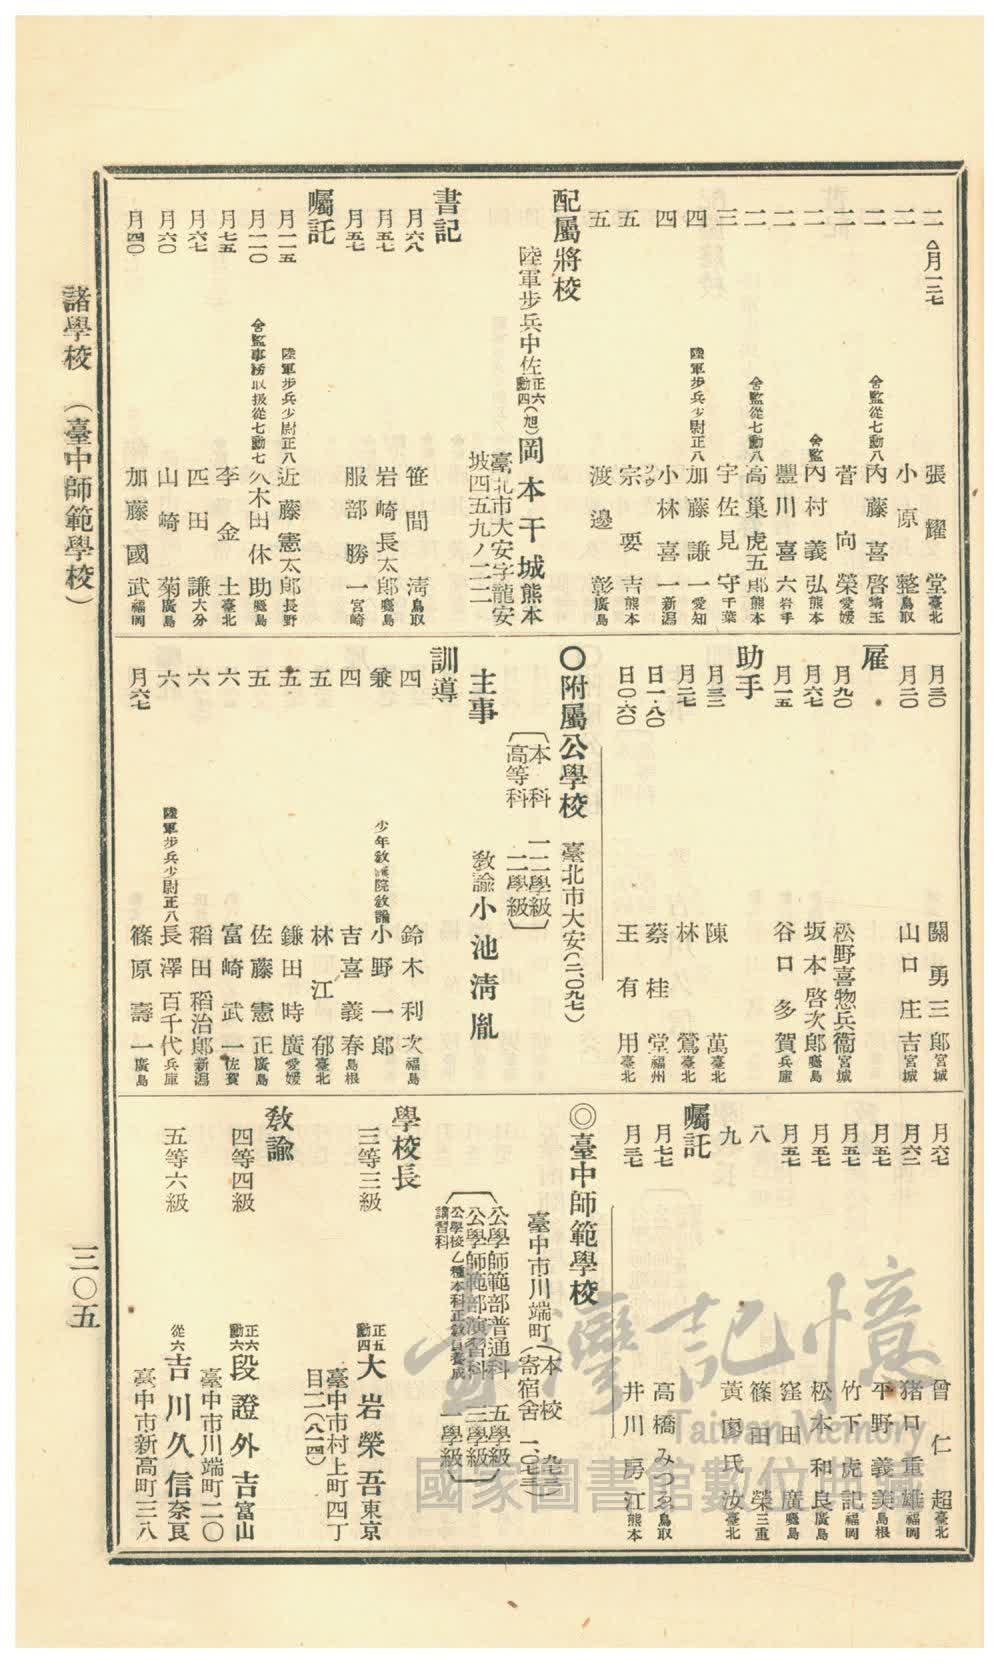 二 △月一三七 張耀堂 臺北
二 小原整 鳥取
二 舍監從七勳八 內藤喜啓 埼玉
二 菅向榮 愛媛
二 舍監 內村義弘 熊本
二 豐川喜六 岩手
二 舍監從七勳八 高巢虎五郎 熊本
三 宇佐見守 千葉
四 陸軍步兵少尉正八 加藤謙一 愛知
四 小林喜一 新潟
五 宗要吉 熊本
五 渡邊彰 廣島
配屬將校
陸軍步兵中佐 正六勳四(旭) 岡本干城 熊本
臺北市大安字龍安
坡四五九ノ二二一
書記
月六八 笹間淸 鳥取
月五七 岩崎長太郎 廣島
月五七 服部勝一 宮崎
囑託
月一一五 陸軍步兵少尉正八 近藤憲太郎 長野
月一一〇 舍監事務取扱從七勳七 久木田休助 鹿兒島
月七五 李金土 臺北
月六七 匹田謙 大分
月六〇 山崎菊 廣島
月四〇 加藤國武 福岡
月三〇 關勇三郎 宮城
月二〇 山口庄吉 宮城
雇
月九〇 松野喜惣兵衞 宮城
月六七 坂本啓次郎 鹿兒島
月一五 谷口多賀 兵庫
助手
月三三 陳萬 臺北
月二七 林鶯 臺北
日一・八〇 蔡桂堂 福州
日〇・六〇 王有用 臺北
〇附屬公學校 臺北市大安(二、〇九七)
本科 一二學級
高等科 二學級
主事 敎諭 小池淸胤
訓導
四 鈴木利次 福島
兼 少年敎護院敎諭 小野一郎
四 吉喜義春 島根
五 林江郁 臺北
五 鎌田時廣 愛媛
五 佐藤憲正 廣島
六 富崎武一 佐賀
六 稻田稻治郎 新潟
六 陸軍步兵少尉正八 長澤百千代 兵庫
月六七 篠原壽一 廣島
月六七 曾仁超 臺北
月六二 猪口重雄 福岡
月五七 平野義美 島根
月五七 竹下虎記 福岡
月五七 松本和良 廣島
月五七 窪田廣 鹿兒島
八 篠田榮 三重
九 黃廖氏汝 臺北
囑託
月七七 高橋みつゑ 鳥取
月三七 井川房江 熊本
◎臺中師範學校
臺中市川端町(本校 九七三 寄宿舍 一、〇七三)
公學師範部普通科 五學級
公學師範部演習科 三學級
公學校乙種本科正敎員養成講習科 一學級
學校長
三等三級 正五勳四 大岩榮吾 東京
臺中市村上町四丁
目二二(八一四)
敎諭
四等四級 正六勳六 段證外吉 富山
臺中市川端町二〇
五等六級 從六 吉川久信 奈良
臺中市新高町三八
諸學校 (臺中師範學校)
三〇五
臺灣記憶
Taiwan Memory
國家圖書館數位典藏